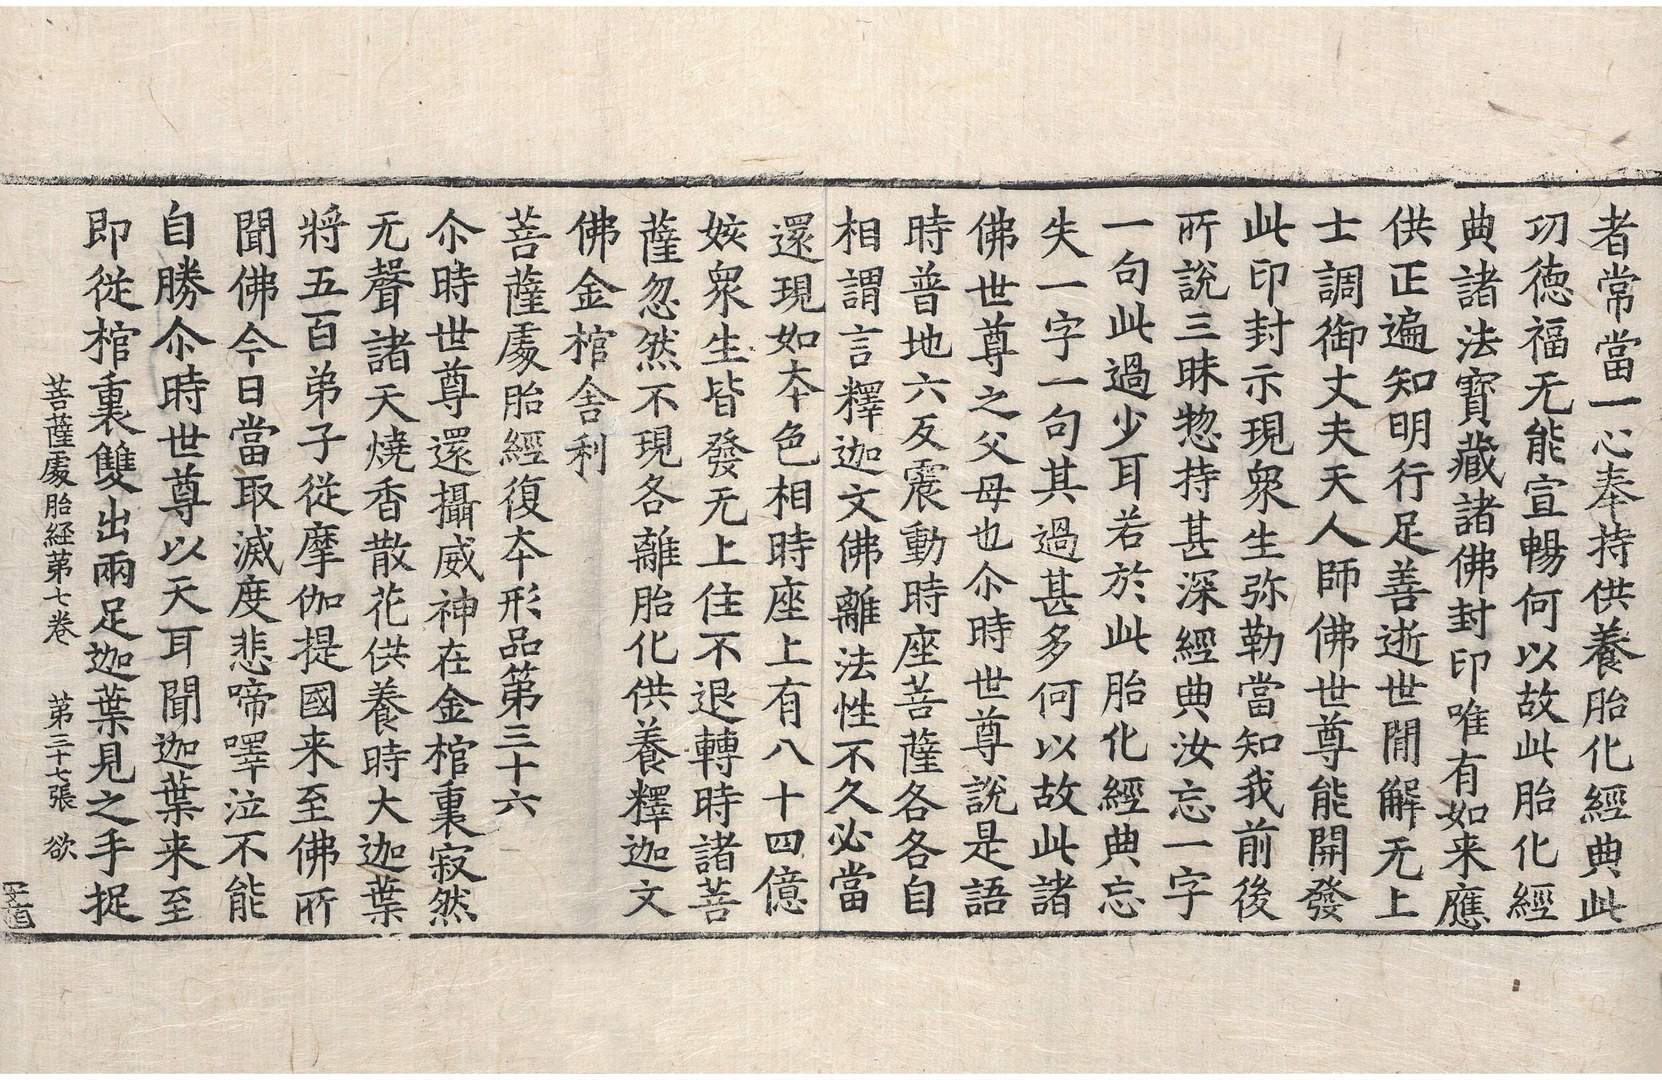 者常當一心奉持供養胎化經典此
功德福无能宣暢何以故此胎化經
典諸法寶藏諸佛封印唯有如来應
供正遍知明行足善逝世閒解无上
士調御丈夫天人師佛世尊能開發
此印封示現衆生弥勒當知我前後
所說三昧惣持甚深經典汝忘一字
一句此過少耳若於此胎化經典忘
失一字一句其過甚多何以故此諸
佛世尊之父母也尒時世尊說是語
時普地六反震動時座菩薩各各自
相謂言釋迦文佛離法性不久必當
還現如夲色相時座上有八十四億
姟衆生皆發无上住不退轉時諸菩
薩忽然不現各離胎化供養釋迦文
佛金棺舍利
菩薩處胎經復夲形品第三十六
尒時世尊還攝威神在金棺裏寂然
无聲諸天燒香散花供養時大迦葉
將五百弟子從摩伽提國来至佛所
聞佛今日當取滅度悲啼㖶泣不能
自勝尒時世尊以天耳聞迦葉来至
即從棺裏雙出兩足迦葉見之手捉
菩薩處胎経苐七卷 第三十七張 欲